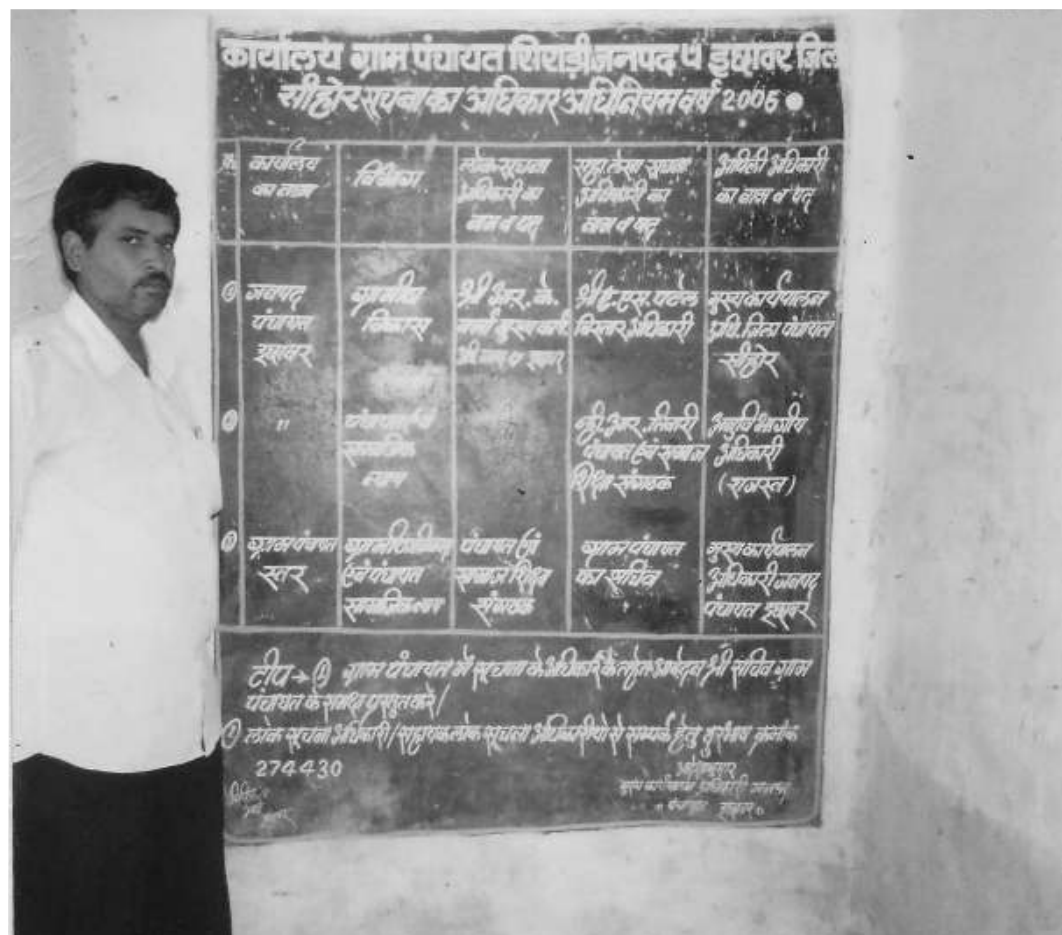 कार्यालय ग्राम पंचायत सिराड़ी जनपद पं इछावर जिला
सीहोर सूचना का अधिकार अधिनियम वर्ष 2005
कार्यालय का नाम
लोक सूचना अधिकारी का नाम व पद
अधिकारी का नाम व पद
अपिली अधिकारी का नाम व पद
जनपद पंचायत इछावर
ग्रामीण विकास
श्री आर. के.
श्री ए. एस. पटेल विस्तार अधिकारी
मुख्य कार्यपालन अधि. जिला पंचायत सीहोर
"
सामाजिक न्याय
आर. तिवारी पंचायत एवं समाज शिक्षा संगठक
अनुविभागीय अधिकारी (राजस्व)
ग्राम पंचायत स्तर
एवं पंचायत सामाजिक न्याय
पंचायत एवं समाज शिक्षा संगठक
ग्राम पंचायत का सचिव
मुख्य कार्यपालन अधिकारी जनपद पंचायत इछावर
टीप → (1) ग्राम पंचायत में सूचना के अधिकार के तहत आवेदन श्री सचिव ग्राम
पंचायत के समक्ष प्रस्तुत करे।
लोक सूचना अधिकारी / सहायक लोक सूचना अधिकारीयो से सम्पर्क हेतु दुरभाष क्रमांक
274430